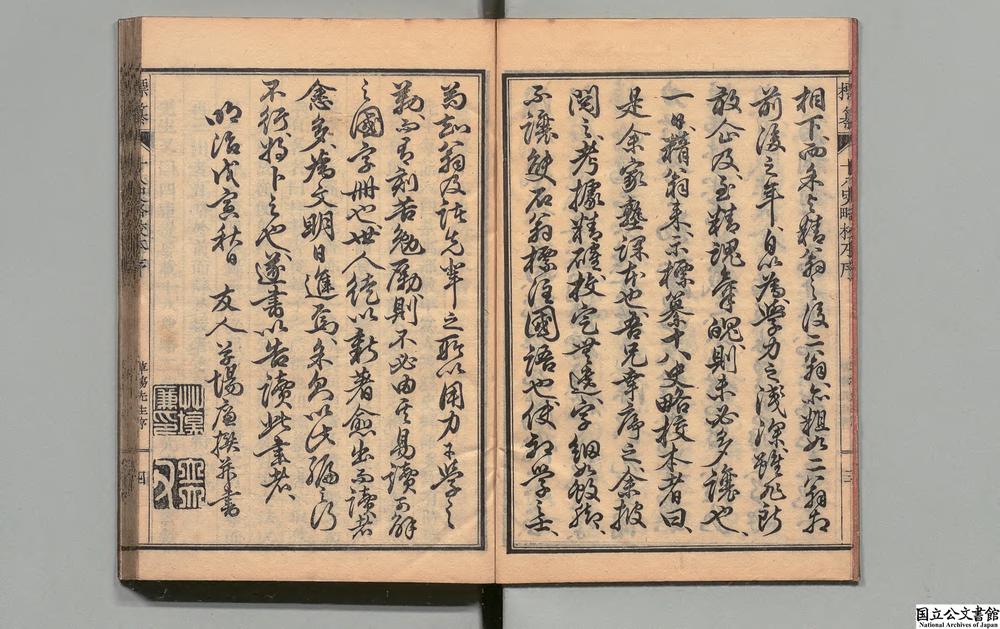 相下而朱之精翁之後二翁亦粗如二翁相
前後之年自以為學力之淺深雖非所
敢企及至精魂奪魄則未必多讓也
一日精翁来示標纂十八史略校本者曰
是余家塾課本也吾兄幸序之余披
閱之考據精確校定無遺字細如
不讓石翁標注國語也使初學之士
為知翁及諸先輩之所以用力于學之
勤而有刻苦勉勵則不必由其易讀可解
之國字冊也世人徒以新著愈出而讀者
愈多為文明日進焉余以此編之行
不行將卜之也遂書以告讀此書者
明治戊寅秋日 友人草場廉撰并書
標纂 十八史略校本序
三
標纂 十八史略校本序
草場先生序
四
国立公文書館
National Archives of Japan